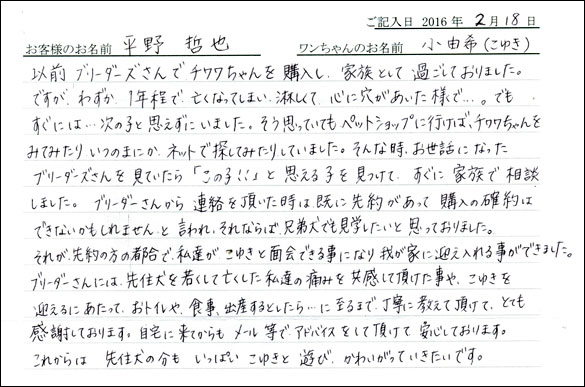 ご記入日 2016 年 2 月 18 日
お客様のお名前 平野 哲也 ワンちゃんのお名前 小由希(こゆき)
以前 ブリーダーズさんで チワワちゃんを 購入し、家族として 過ごしておりました。
ですが、わずか、1年程で、亡くなってしまい、淋しくて、心に穴があいた様で…。でも
すぐには…次の子と思えずにいました。そう思っていてもペットショップに行けば、チワワちゃんを
みてみたり、いつのまにか、ネットで探してみたりしていました。そんな時、お世話になった
ブリーダーズさんを見ていたら「この子!!」と思える子を見つけて、すぐに家族で相談
しました。ブリーダーさんから 連絡を頂いた時は既に先約があって 購入の確約は
できないかもしれません、と 言われ、それならば、兄弟犬でも見学したいと思っておりました。
それが、先約の方の都合で、私達が、こゆきと面会できる事になり我が家に迎え入れる事ができました。
ブリーダーさんには、先住犬を若くして亡くした私達の痛みを共感して頂けた事や、こゆきを
迎えるにあたって、おトイレや、食事、出産するとしたら…に至るまで、丁寧に教えて頂けて、とても
感謝しております。自宅に来てからも メール等で、アドバイスをして頂けて 安心しております。
これからは 先住犬の分も いっぱい こゆきと 遊び、かわいがっていきたいです。